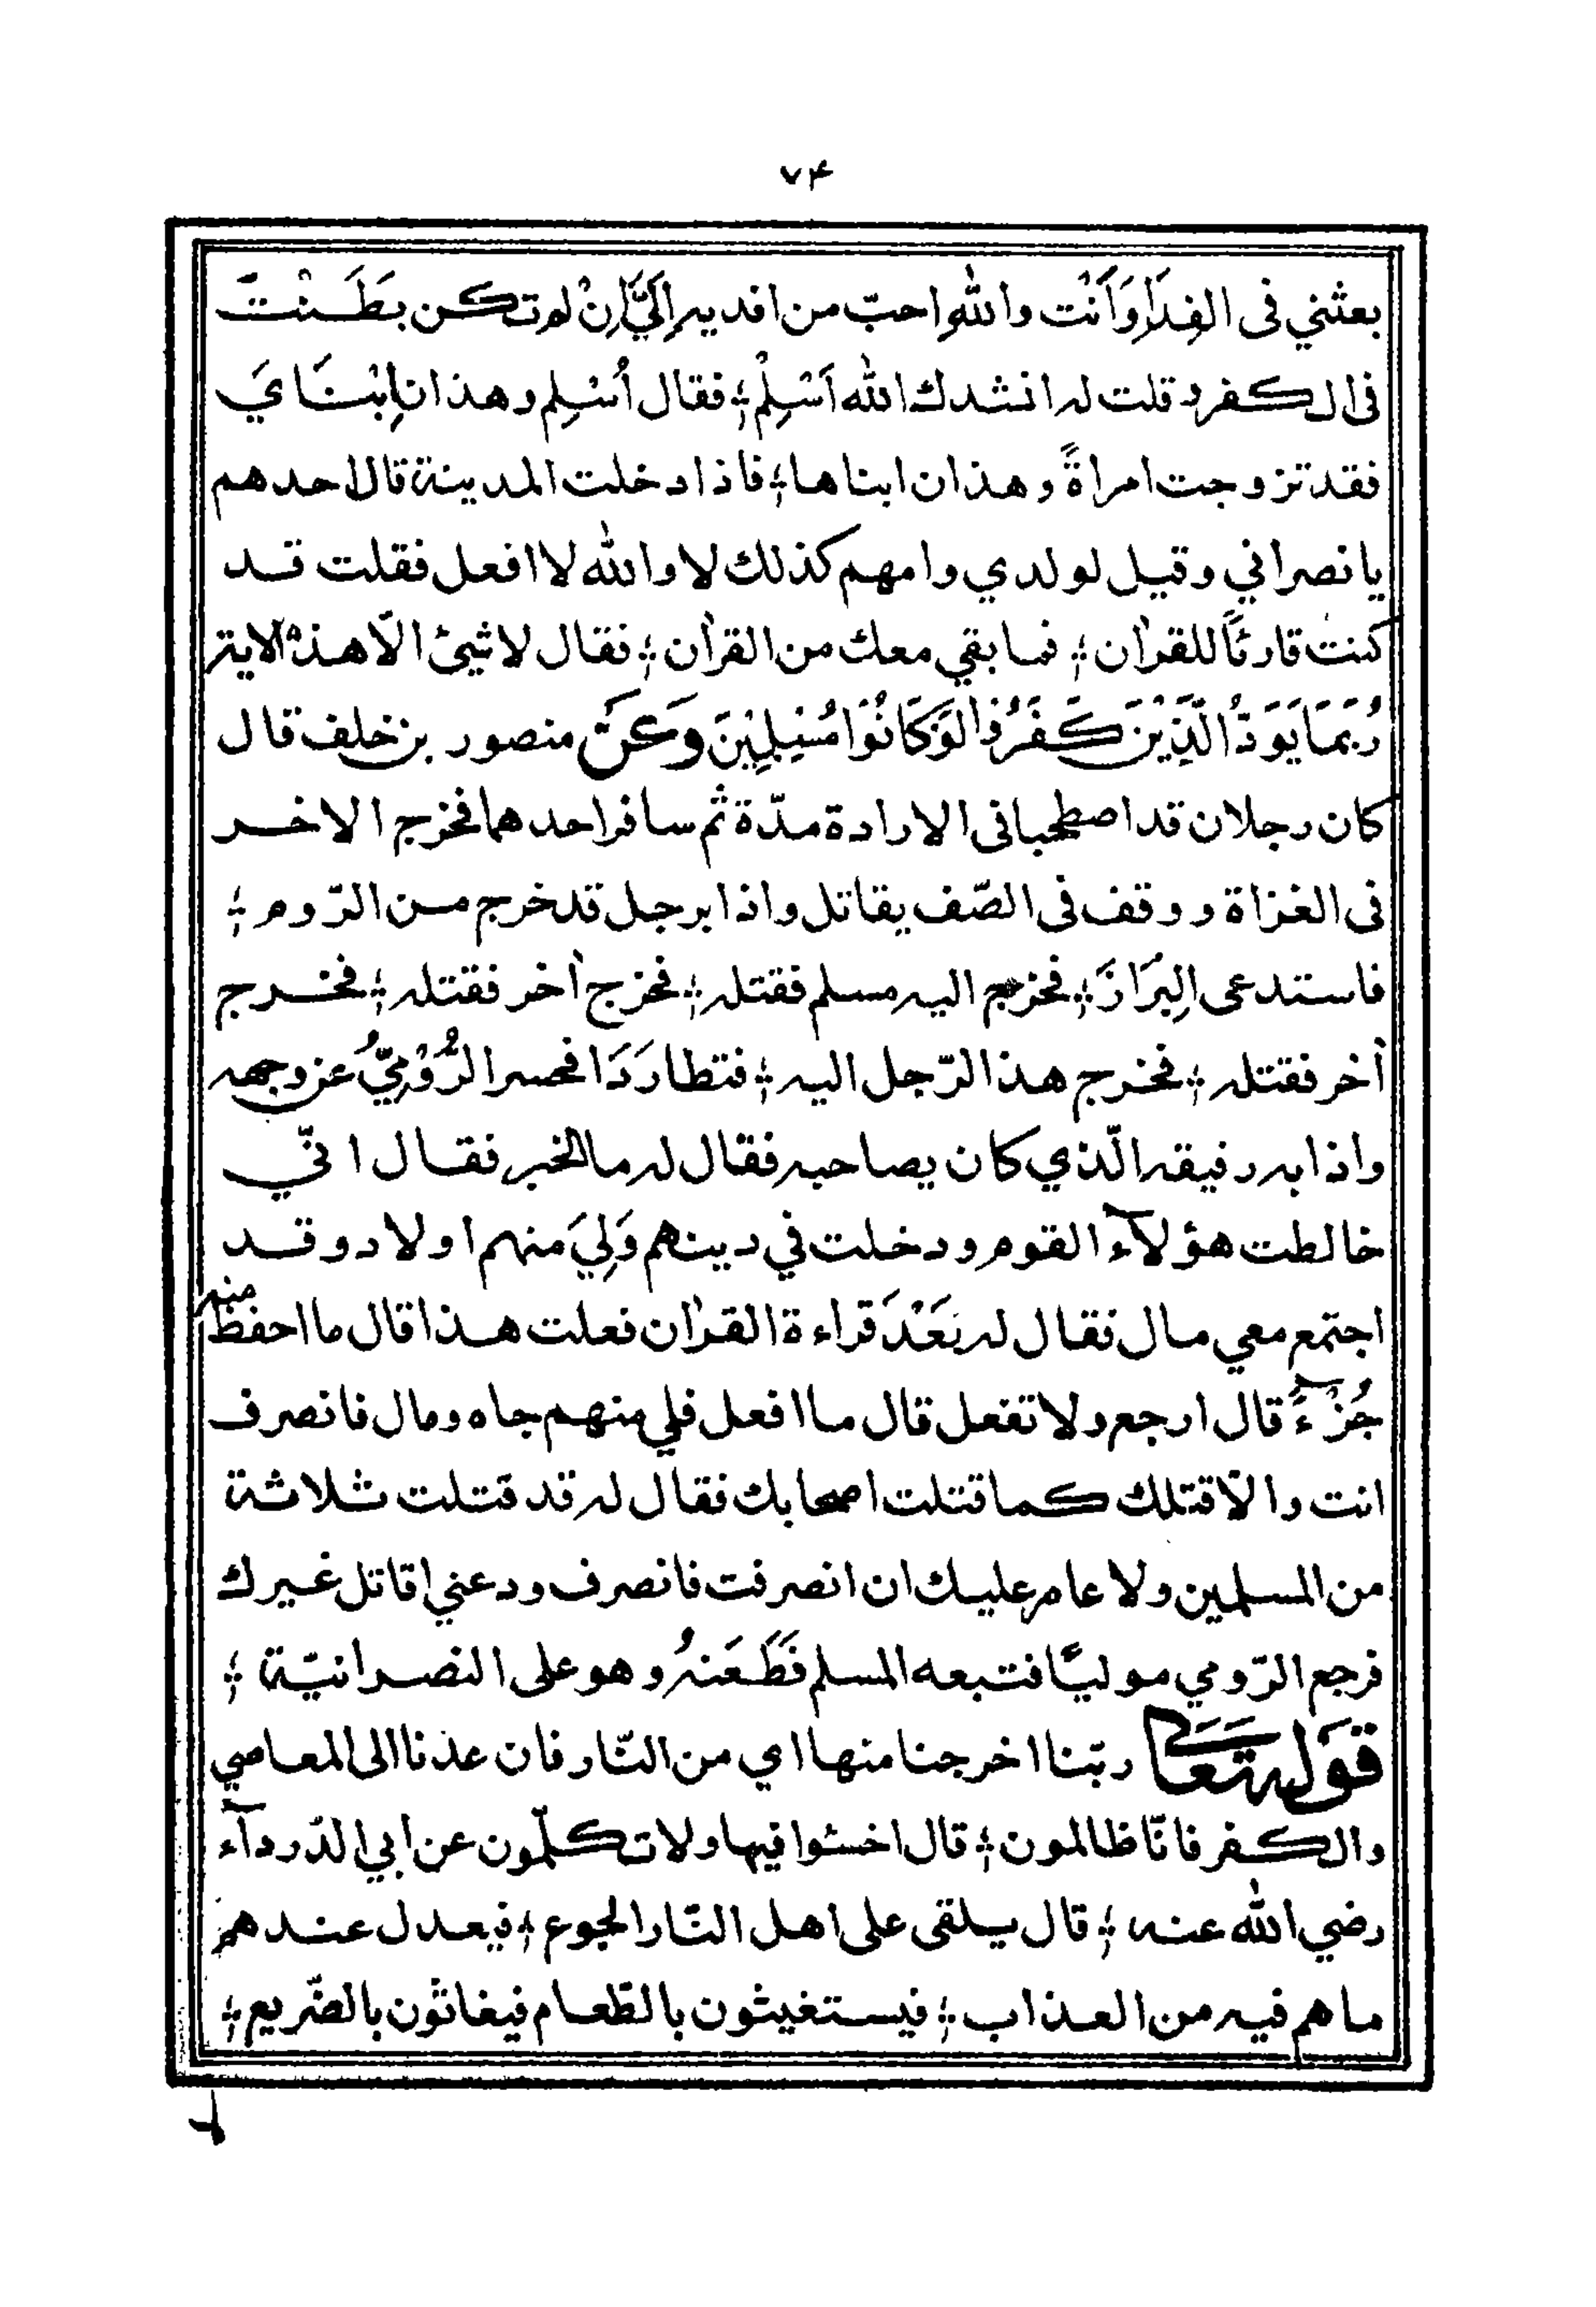 ٧٤
بعثني فى الفِدَاءِ وَاَنْت واللهِ احبّ من افديه اِلَيَّ اِنْ لم تكن بَطَنْتَ
فى الكفر وقلت له انشدك الله اَسْلِمْ ؛ فقال أُسْلِم وهذان اِبْنَايَ
فقد تزوجت امراةً وهذان ابناها ؛ فاذا دخلت المدينة قال احدهم
يا نصراني وقيل لولدي وامهم كذلك لا والله لا افعل فقلت قد
كنت قارئًا للقرٰان ؛ فما بقي معك من القرٰان ؛ فقال لا شيئ الّا هذه الاية
رُبَمَا يَوَدُّ الَّذِيْنَ كَفَرُوْا لَوْ كَانُوْا مُسْلِمِيْنَ وَعَنْ منصور بن خلف قال
كان رجلان قد اصطحبا فى الارادة مدّة ثم سافر احدهما فخرج الاخر
فى الغزاة ووقف فى الصّف يقاتل واذا برجل قد خرج من الرّوم ؛
فاستدعى البِرَازَ ؛ فخرج اليه مسلم فقتله ؛ فخرج اٰخر فقتله ؛ فخرج
اٰخر فقتله ؛ فخرج هذا الرّجل اليه ؛ فتطارَدَا فحسر الرُّوْمِيُّ عن وجهه
واذا به رفيقه الّذي كان يصاحبه فقال له ما الخبر فقال انّي
خالطت هؤلآء القوم ودخلت في دينهم وَلِيَ منهم اولاد وقد
اجتمع معي مال فقال له بَعْدَ قراءة القرٰان فعلت هذا قال ما احفظ منه
جُزْءً قال ارجع ولا تفعل قال ما افعل فلي منهم جاه ومال فانصرف
انت والّا قتلك كما قتلت اصحابك فقال له قد قتلت ثلاثة
من المسلمين ولا عار عليك ان انصرفت فانصرف ودعني اقاتل غيرك
فرجع الرّومي موليًّا فتبعه المسلم فَطَعَنَهُ وهو على النصرانيّة ؛
قَوْلُه تَعَالَى ربّنا اخرجنا منها اي من النّار فان عدنا الى المعاصي
والكفر فانّا ظالمون ؛ قال اخسئوا فيها ولا تكلّمون عن ابي الدّردآء
رضي الله عنه ؛ قال يلقى على اهل النّار الجوع ؛ فيعدل عندهم
ما هم فيه من العذاب ؛ فيستغيثون بالطّعام فيغاثون بالضّريع ؛